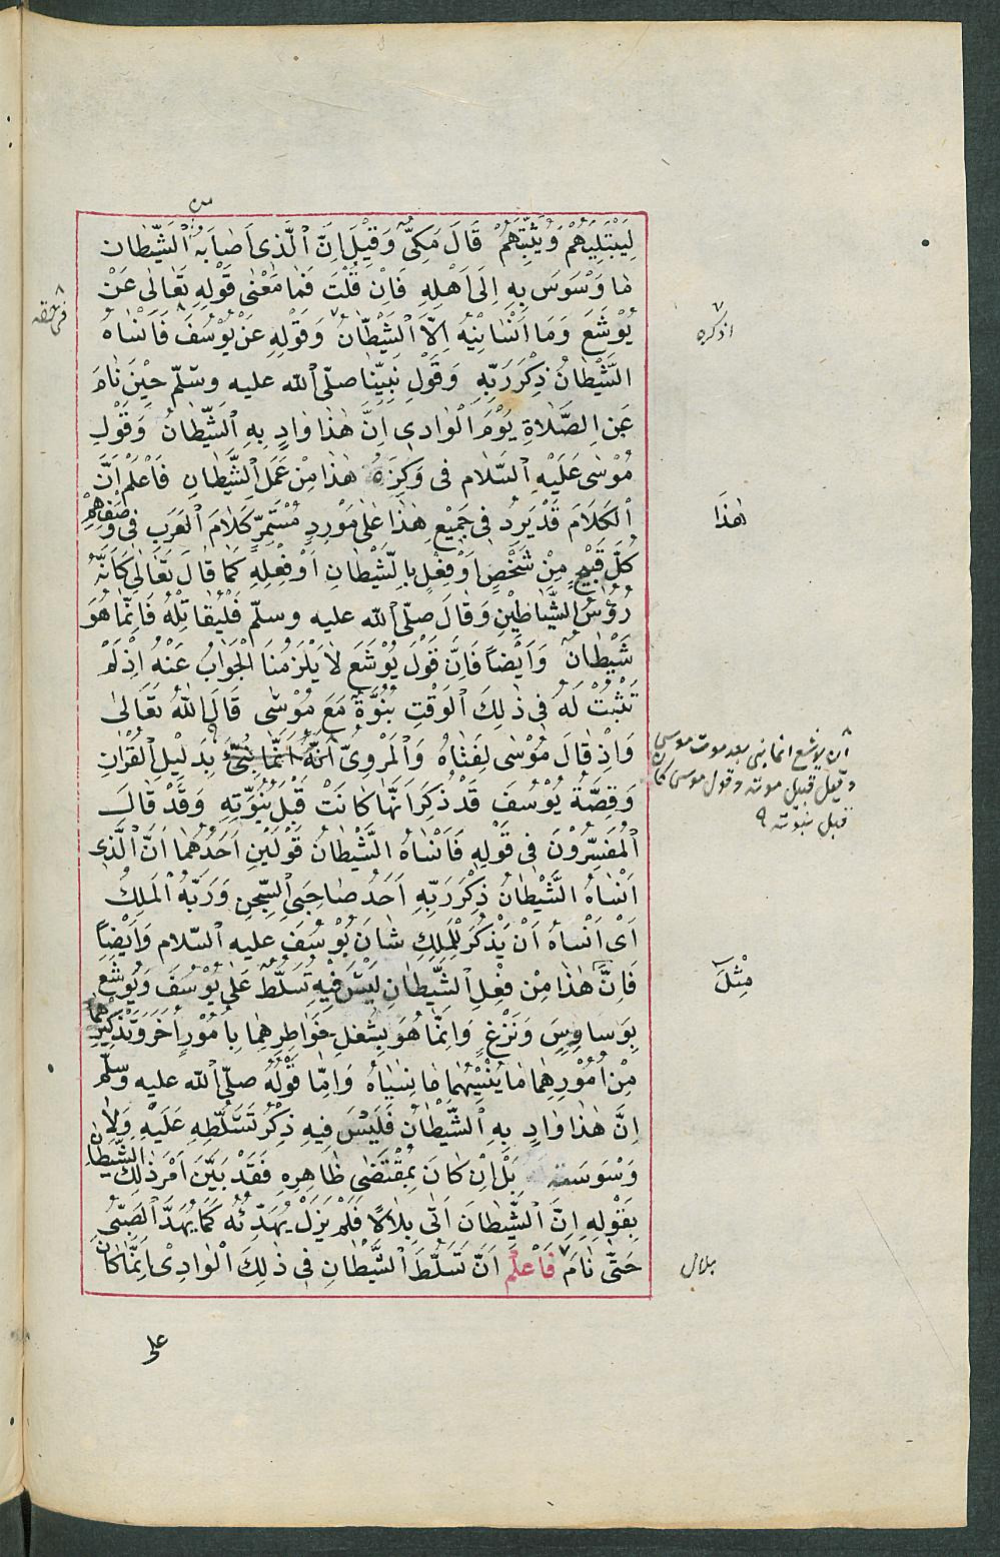 من
لِيَبْتَلِيَهُمْ وَيُثِيبَهُمْ قَالَ مَكِّىٌّ وَقِيلَ اِنَّ الَّذِى اَصَابَهُ الشَّيْطَان
مَا وَسْوَسَ بِهِ اِلَى اَهْلِهِ فَاِنْ قُلْتَ فَمَا مَعْنَى قَوْلِهِ تَعَالَى عَنْ
يُوْشَعَ وَمَا اَنْسَانِيْهُ اِلَّا الشَّيْطَانُ وَقَوْلِهِ عَنْ يُوْسُفَ فَاَنْسَاهُ
الشَّيْطَانُ ذِكْرَ رَبِّهِ وَقَوْلِ نَبِيِّنَا صلّى الله عليه وسلّم حِيْنَ نَامَ
عَنِ الصَّلَاةِ يَوْمَ الْوَادِى اِنَّ هٰذَا وَادٍ بِهِ الشَّيْطَانُ وَقَوْلِ
مُوْسٰى عَلَيْهِ السَّلَام فى وَكْزِهِ هٰذَا مِنْ عَمَلِ الشَّيْطَانِ فَاعْلَمْ اَنَّ
الْكَلَامَ قَدْ يَرِدُ فِى جَمِيْعِ هٰذَا عَلٰى مَوْرِدِ مُسْتَمِرِّ كَلَامِ الْعَرَبِ فى وَصْفِهِمْ
كُلَّ قَبِيْحٍ مِنْ شَخْصٍ اَوْ فِعْلٍ بِالشَّيْطَانِ اَوْ فِعْلِهِ كَمَا قَالَ تَعَالٰى كَاَنَّهُ
رُؤُسُ الشَّيَاطِيْنِ وَقَالَ صلّى الله عليه وسلّم فَلْيُقَاتِلْهُ فَاِنَّمَا هُوَ
شَيْطَانٌ وَاَيْضًا فَاِنَّ قَوْلَ يُوْشَعَ لَا يَلْزَمُنَا الْجَوَابُ عَنْهُ اِذْ لَمْ
تَثْبُتْ لَهُ فى ذٰلِكَ الْوَقْتِ نُبُوَّةٌ مَعَ مُوْسٰى قَالَ اللهُ تَعَالٰى
وَاِذْ قَالَ مُوْسٰى لِفَتَاهُ وَالْمَرْوِىُّ اَنَّهُ اِنَّمَا نُبِّئَ بِدَلِيْلِ الْقُرْاٰنِ
وَقِصَّةُ يُوْسُفَ قَدْ ذُكِرَ اَنَّهَا كَانَتْ قَبْلَ نُبُوَّتِهِ وَقَدْ قَالَ
الْمُفَسِّرُوْنَ فِى قَوْلِهِ فَاَنْسَاهُ الشَّيْطَانُ قَوْلَيْنِ اَحَدُهُمَا اَنَّ الَّذِى
اَنْسَاهُ الشَّيْطَانُ ذِكْرَ رَبِّهِ اَحَدُ صَاحِبَىِ السِّجْنِ وَرَبُّهُ الْمَلِكُ
اَىْ اَنْسَاهُ اَنْ يَذْكُرَ لِلْمَلِكِ شَانَ يُوْسُفَ عليه السّلام وَاَيْضًا
فَاِنَّ هٰذَا مِنْ فِعْلِ الشَّيْطَانِ لَيْسَ فِيْهِ تَسَلُّطٌ عَلٰى يُوْسُفَ وَيُوْشَعَ
بِوَسَاوِسَ وَنَزْغٍ وَاِنَّمَا هُوَ بِشُغْلِ خَوَاطِرِهِمَا بِاُمُوْرٍ اُخَرَ وَتَذْكِيْرِهِمَا
مِنْ اُمُوْرِهِمَا مَا يُنْسِيْهِمَا مَا نَسِيَاهُ وَاَمَّا قَوْلُهُ صلّى الله عليه وسلّم
اِنَّ هٰذَا وَادٍ بِهِ الشَّيْطَانُ فَلَيْسَ فِيهِ ذِكْرُ تَسَلُّطِهِ عَلَيْهِ وَلَا
وَسْوَسَتِهِ بَلْ اِنْ كَانَ بِمُقْتَضٰى ظَاهِرِهِ فَقَدْ بَيَّنَ اَمْرَ ذٰلِكَ الشَّيْطَانِ
بِقَوْلِهِ اِنَّ الشَّيْطَانَ اَتٰى بِلَالًا فَلَمْ يَزَلْ يُهَدِّئُهُ كَمَا يُهَدَّأُ الصَّبِىُّ
حَتّٰى نَامَ فَاعْلَمْ اَنَّ تَسَلُّطَ الشَّيْطَانِ فى ذٰلِكَ الْوَادِىْ اِنَّمَا كَانَ
على
اذكره
هٰذَا
ان يوشع انما نبى بعد موت موسى
وقيل قبيل موته وقول موسى كان
قبل نبوّته
مِثْلَ
بلال